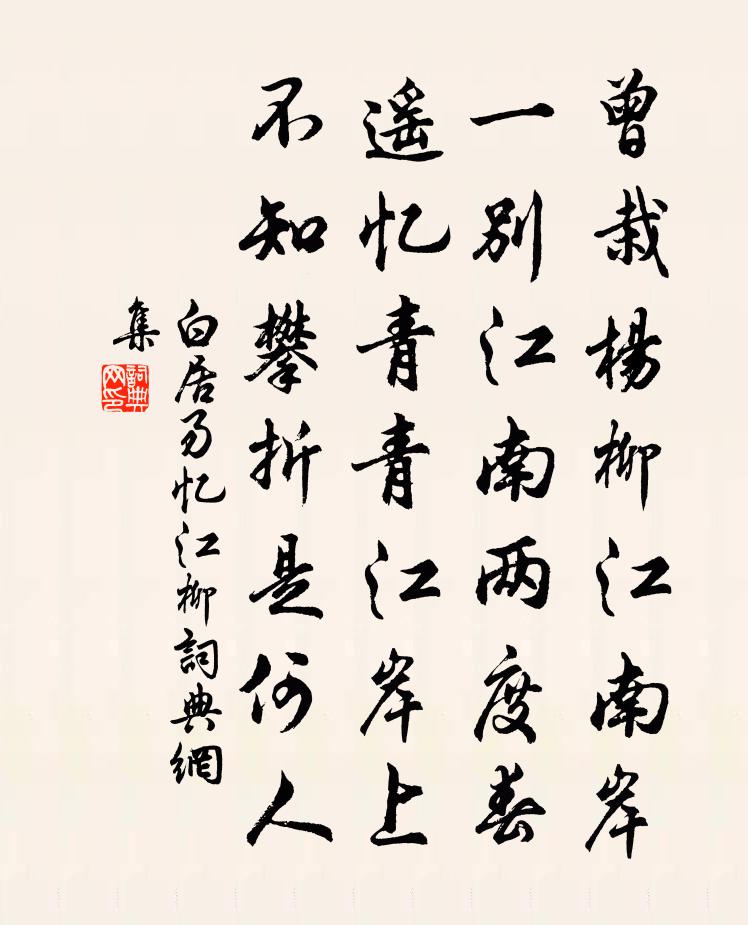 曾栽楊柳江南岸
一别江南两度春
遥忆青青江岸上
不知攀折是何人
白居易忆江柳詞典網
集
詞典
网印